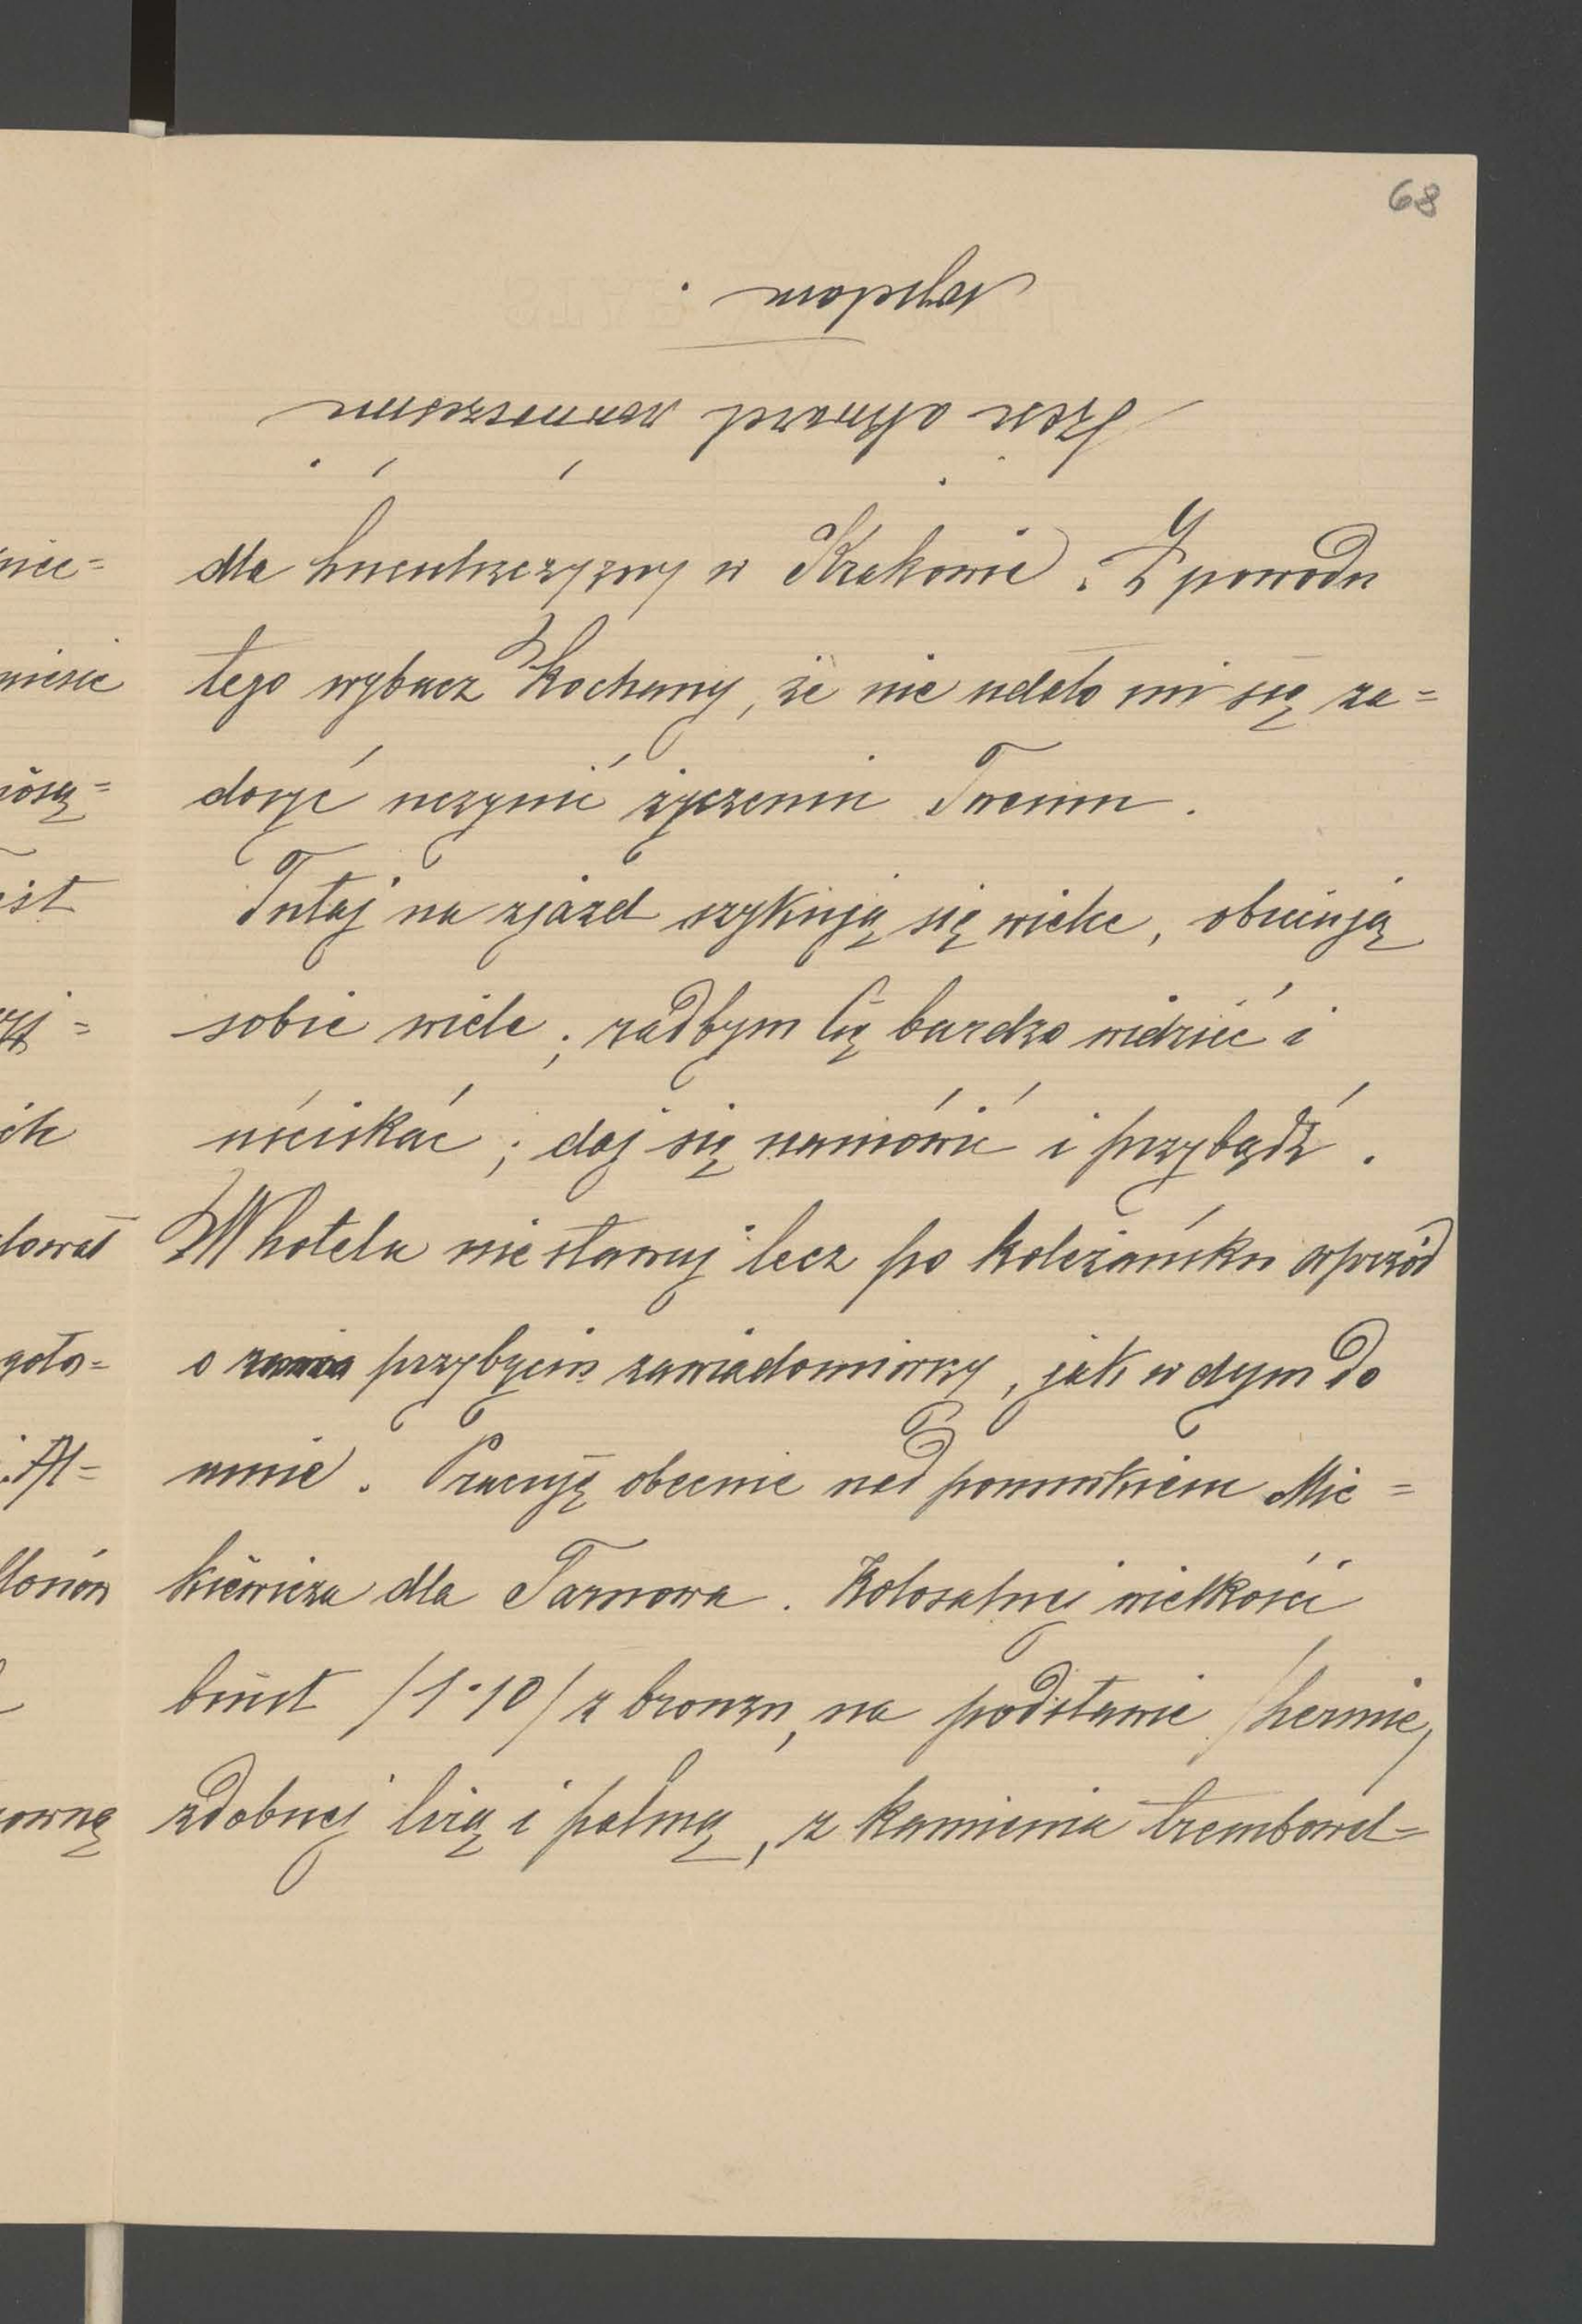 68
wysełam.
Treść odezwy
dla huculszczyzny w Krakowie. Z powodu
tego wybacz Kochany, że nie udało mi się za=
dosyć uczynić życzeniu Twemu.
Tutaj na zjazd szykują się wielce, obiecują
sobie wiele; radbym Cię bardzo widzieć i
uściskać; daj się namówić i przybądź.
W hotelu nie stawaj lecz po koleżańsku wprzód
o przybyciu zawiadomiwszy, jak w dym do
mnie. Pracuję obecnie nad pomnikiem Mic=
kiewicza dla Tarnowa. Kolosalnej wielkości
biust /1·10/ z bronzu, na podstawie /hermie/
zdobnej lirą i palmą, z kamienia trembowel=